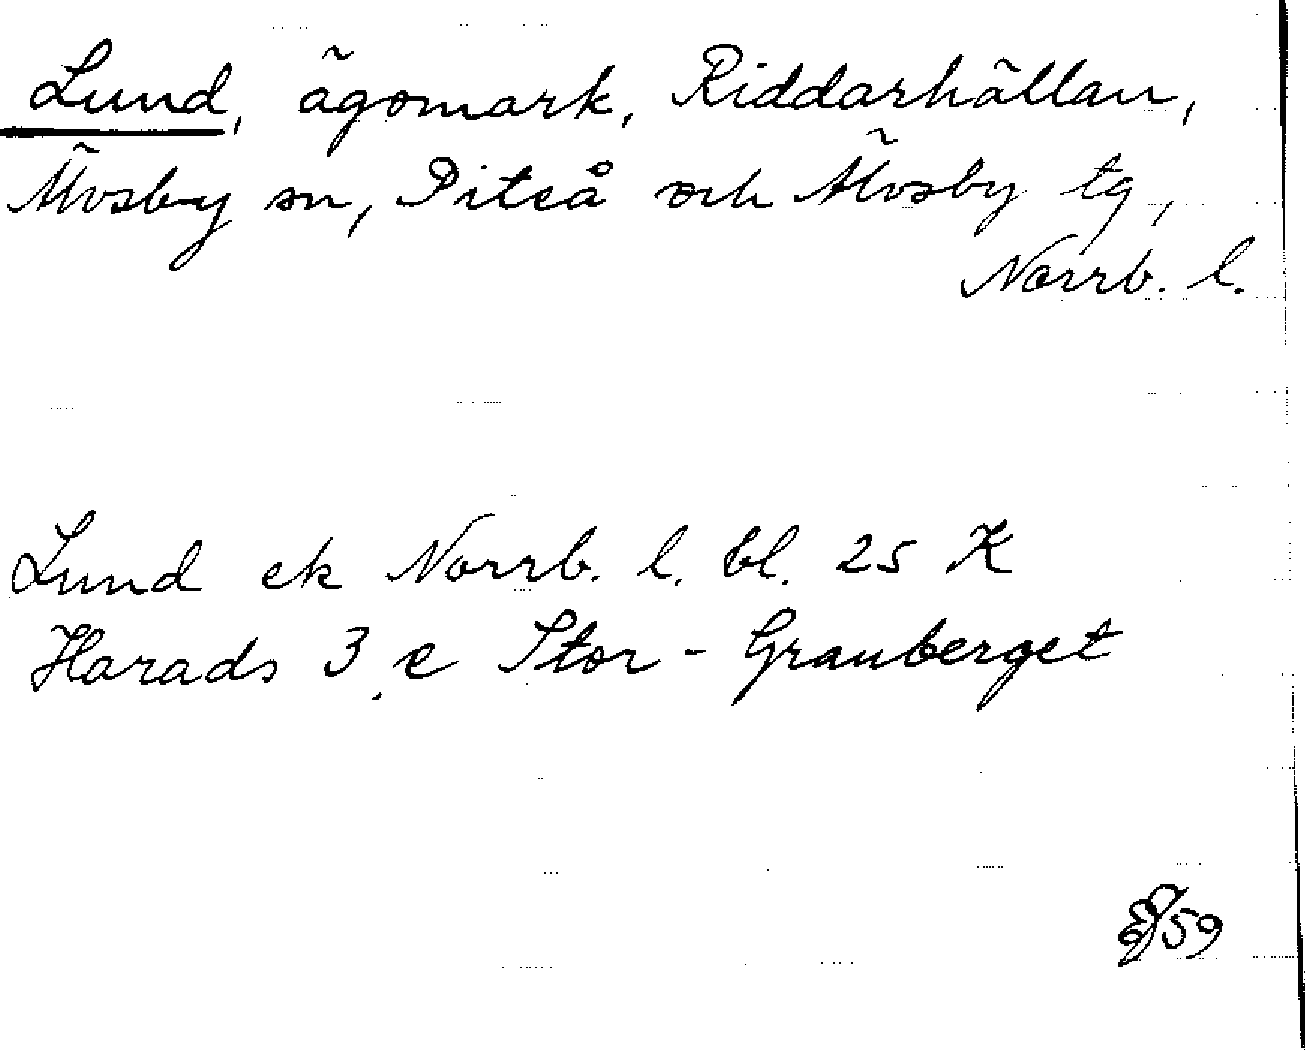 Lund, ägomark, Riddarhällan,
Älvsby sn, Piteå och Älvsby tg,
Norrb. l.
Lund ek Norrb. l. bl. 25 K
Harads 3 e Stor-Granberget
/59